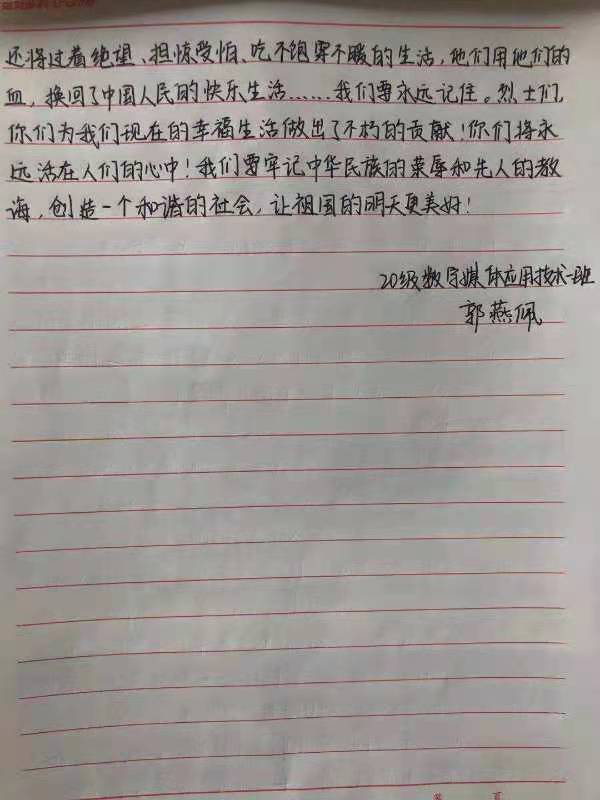 还将过着绝望、担惊受怕、吃不饱穿不暖的生活,他们用他们的
血,换回了中国人民的快乐生活......我们要永远记住。烈士们,
你们为我们现在的幸福生活做出了不朽的贡献!你们将永
远活在人们的心中!我们要牢记中华民族的荣辱和先人的教
诲,创造一个和谐的社会,让祖国的明天更美好!
20级数字媒体应用技术一班
郭燕佩
第 页